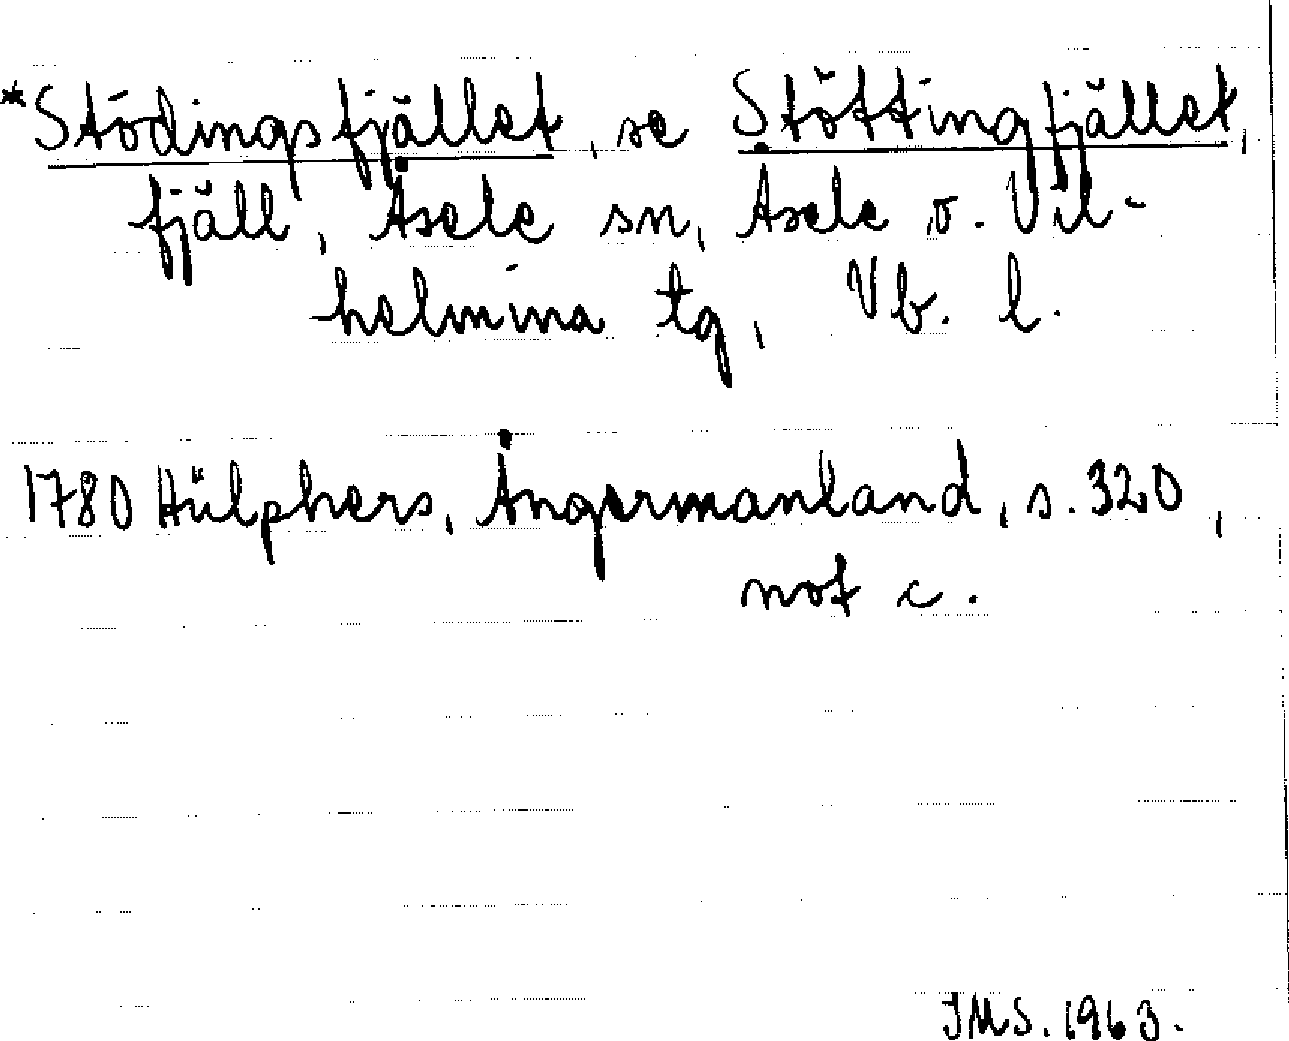 *Stödingsfjället, se Stöttingfjället,
fjäll, Åsele sn, Åsele o. Vil-
helmina tg, Vb. l.
1780 Hülphers, Ångermanland, s. 320,
not c.
JMS. 1963.